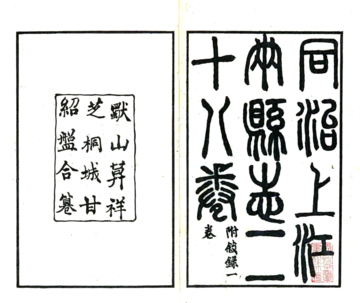 同治上江
兩縣志二
十八卷
附敘錄一
卷
獨山莫祥
芝桐城甘
紹盤合纂